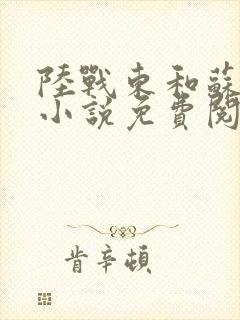 陸戰東和蘇
小說免費閱
肯辛頓